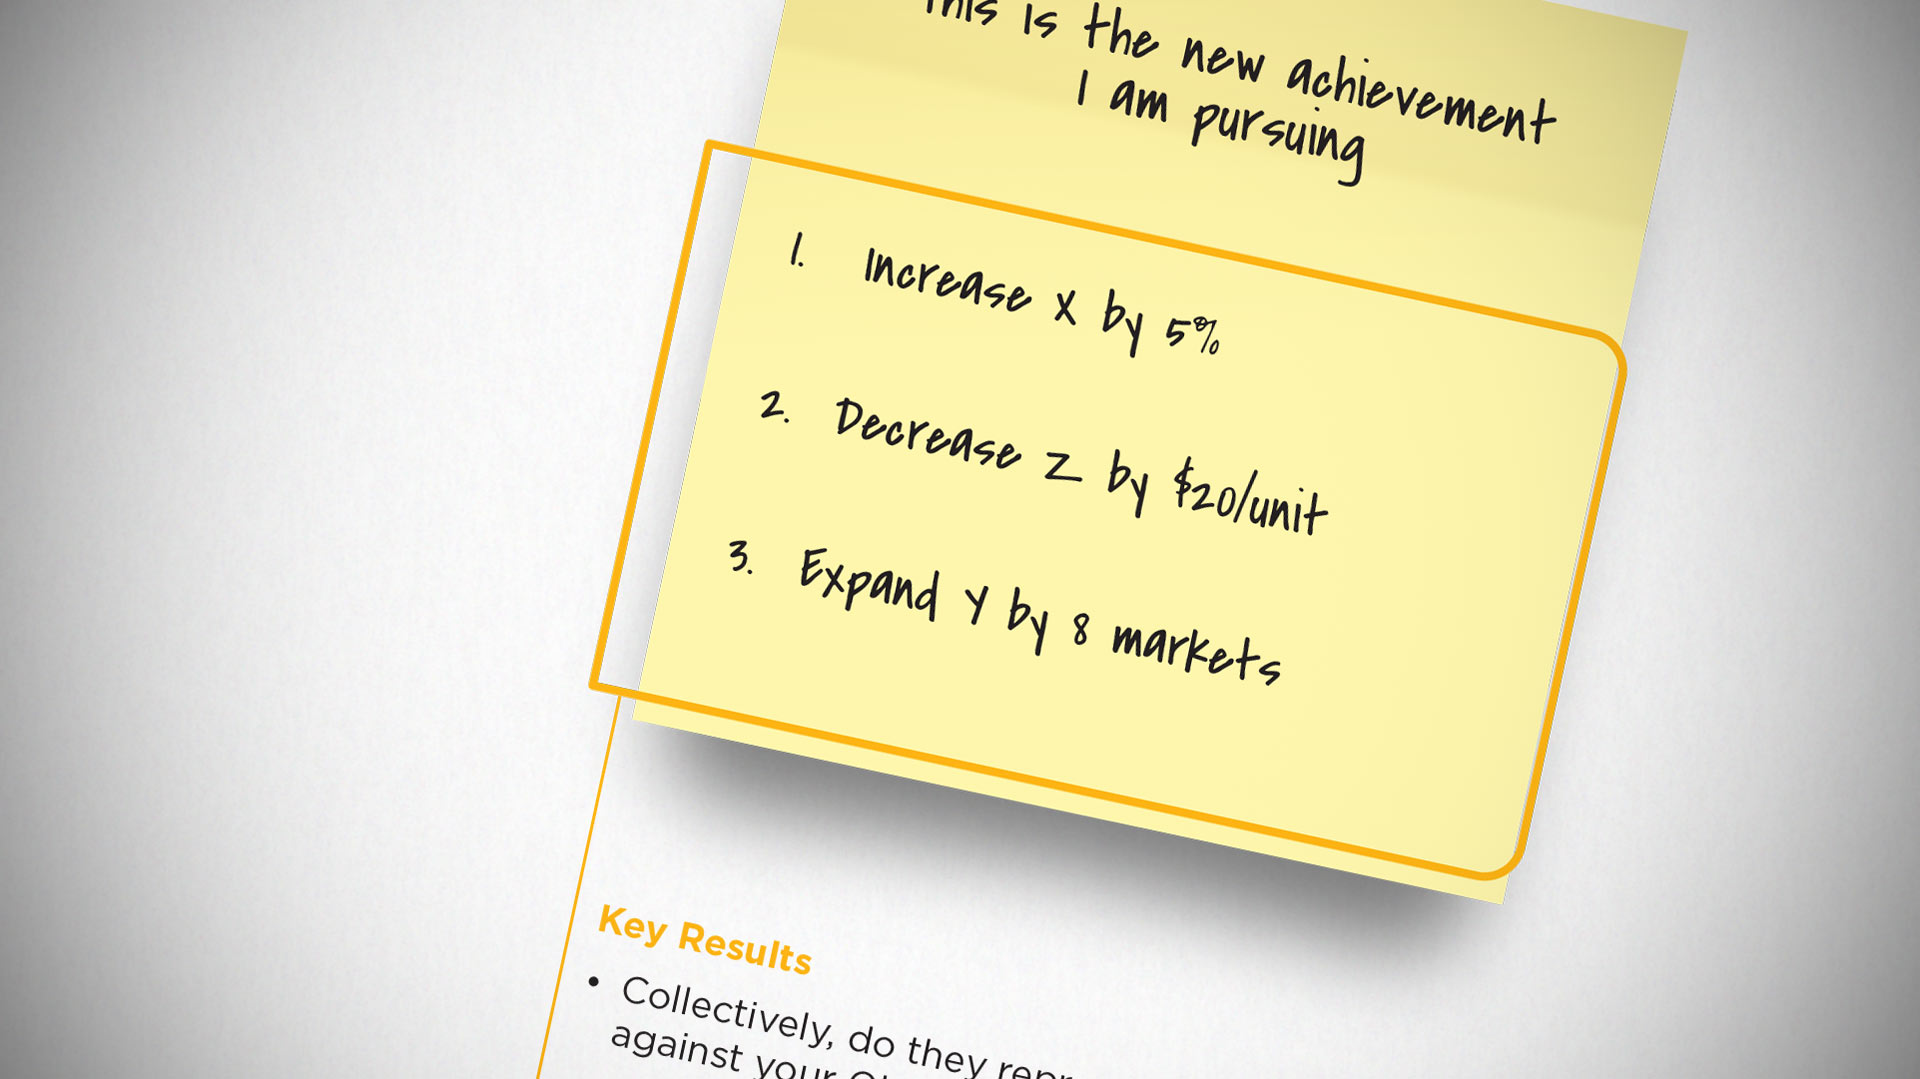 This is the new achievement
I am pursuing
1. Increase X by 5%
2. Decrease Z by $20/unit
3. Expand Y by 8 markets
Key Results
• Collectively, do they
against your